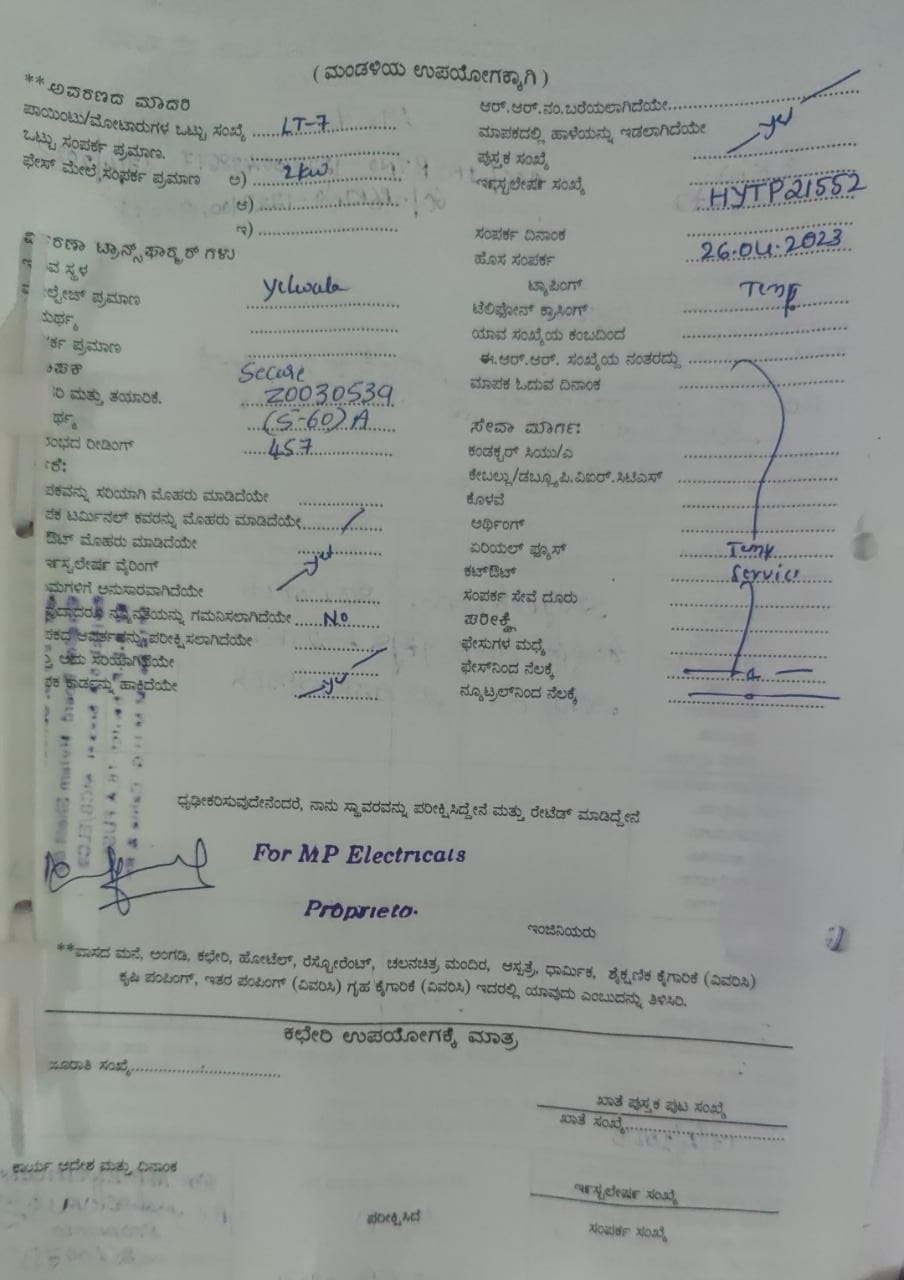 ( ಮಂಡಳಿಯ ಉಪಯೋಗಕ್ಕಾಗಿ )
**ಆವರಣದ ಮಾದರಿ
ಪಾಯಿಂಟು/ಮೋಟಾರುಗಳ ಒಟ್ಟು ಸಂಖ್ಯೆ ..... LT-7
ಒಟ್ಟು ಸಂಪರ್ಕ ಪ್ರಮಾಣ. .....
ಫೇಸ್ ಮೇಲೆ ಸಂಪರ್ಕ ಪ್ರಮಾಣ ಅ) ..... 2kw
ಆ) .....
ಇ) .....
ಟ್ರಾನ್ಸ್‌ಫಾರ್ಮರ್ ಗಳು
ಸ್ಥಳ
ಪ್ರಮಾಣ Yelwala
.....
ಪ್ರಮಾಣ .....
Secure
ಮತ್ತು ತಯಾರಿಕೆ. Z0030539
(5-60)A
ರೀಡಿಂಗ್ ..... 457
ಸರಿಯಾಗಿ ಮೊಹರು ಮಾಡಿದೆಯೇ .....
ಟರ್ಮಿನಲ್ ಕವರನ್ನು ಮೊಹರು ಮಾಡಿದೆಯೇ.....
ಮೊಹರು ಮಾಡಿದೆಯೇ ..... yes
ವೈರಿಂಗ್
ಅನುಸಾರವಾಗಿದೆಯೇ .....
ಗಮನಿಸಲಾಗಿದೆಯೇ ..... No
ಪರೀಕ್ಷಿಸಲಾಗಿದೆಯೇ .....
ಅದು ಸರಿಯಾಗಿದೆಯೇ
ಕಾರ್ಡನ್ನು ಹಾಕಿದೆಯೇ ..... yes
ಆರ್.ಆರ್.ನಂ.ಬರೆಯಲಾಗಿದೆಯೇ.....
ಮಾಪಕದಲ್ಲಿ ಹಾಳೆಯನ್ನು ಇಡಲಾಗಿದೆಯೇ yes
ಪುಸ್ತಕ ಸಂಖ್ಯೆ .....
ಇನ್ಸ್ಟಲೇಷನ್ ಸಂಖ್ಯೆ HYTP21552
ಸಂಪರ್ಕ ದಿನಾಂಕ .....
ಹೊಸ ಸಂಪರ್ಕ 26.04.2023
ಟ್ಯಾಪಿಂಗ್ Temp
ಟೆಲಿಫೋನ್ ಕ್ರಾಸಿಂಗ್ .....
ಯಾವ ಸಂಖ್ಯೆಯ ಕಂಬದಿಂದ .....
ಈ.ಆರ್.ಆರ್. ಸಂಖ್ಯೆಯ ನಂತರದ್ದು .....
ಮಾಪಕ ಓದುವ ದಿನಾಂಕ .....
ಸೇವಾ ಮಾರ್ಗ:
ಕಂಡಕ್ಟರ್ ಸಿಯು/ಎ .....
ಕೇಬಲ್ಲು/ಡಬ್ಲ್ಯೂ.ಪಿ.ವಿಐರ್.ಸಿಟಿಎಸ್ .....
ಕೊಳವೆ .....
ಅರ್ಥಿಂಗ್ .....
ಏರಿಯಲ್ ಫ್ಯೂಸ್ Temp
ಕಟ್‌ಔಟ್ Service
ಸಂಪರ್ಕ ಸೇವೆ ದೂರು .....
ಪರೀಕ್ಷೆ .....
ಫೇಸುಗಳ ಮಧ್ಯೆ .....
ಫೇಸ್‌ನಿಂದ ನೆಲಕ್ಕೆ .....
ನ್ಯೂಟ್ರಲ್‌ನಿಂದ ನೆಲಕ್ಕೆ .....
ಧೃಢೀಕರಿಸುವುದೇನೆಂದರೆ, ನಾನು ಸ್ಥಾವರವನ್ನು ಪರೀಕ್ಷಿಸಿದ್ದೇನೆ ಮತ್ತು ರೇಟೆಡ್ ಮಾಡಿದ್ದೇನೆ
For MP Electricals
Proprieto.
ಇಂಜಿನಿಯರು
**ವಾಸದ ಮನೆ, ಅಂಗಡಿ, ಕಛೇರಿ, ಹೋಟೆಲ್, ರೆಸ್ಟೋರೆಂಟ್, ಚಲನಚಿತ್ರ ಮಂದಿರ, ಆಸ್ಪತ್ರೆ, ಧಾರ್ಮಿಕ, ಶೈಕ್ಷಣಿಕ ಕೈಗಾರಿಕೆ (ವಿವರಿಸಿ)
ಕೃಷಿ ಪಂಪಿಂಗ್, ಇತರ ಪಂಪಿಂಗ್ (ವಿವರಿಸಿ) ಗೃಹ ಕೈಗಾರಿಕೆ (ವಿವರಿಸಿ) ಇದರಲ್ಲಿ ಯಾವುದು ಎಂಬುದನ್ನು ತಿಳಿಸಿರಿ.
ಕಛೇರಿ ಉಪಯೋಗಕ್ಕೆ ಮಾತ್ರ
ಜೂರಾತಿ ಸಂಖ್ಯೆ.....
ಖಾತೆ ಪುಸ್ತಕ ಪುಟ ಸಂಖ್ಯೆ
ಖಾತೆ ಸಂಖ್ಯೆ.....
ಕಾರ್ಯ ಆದೇಶ ಮತ್ತು ದಿನಾಂಕ
ಇನ್ಸ್ಟಲೇಷನ್ ಸಂಖ್ಯೆ
ಪರೀಕ್ಷಿಸಿದೆ
ಸಂಪರ್ಕ ಸಂಖ್ಯೆ